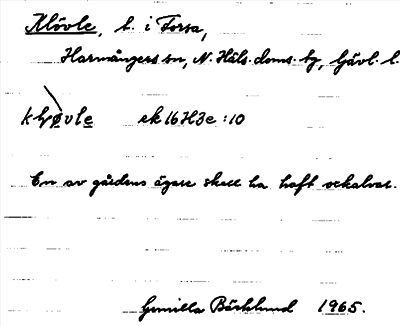 Klövle, b. i Forsa,
Harmångers sn, N. Häls. doms. bg, Gävl. l.
ek 16H3e :10
En av gårdens ägare skall ha haft oxkalvar.
Gunilla Bäcklund 1965.